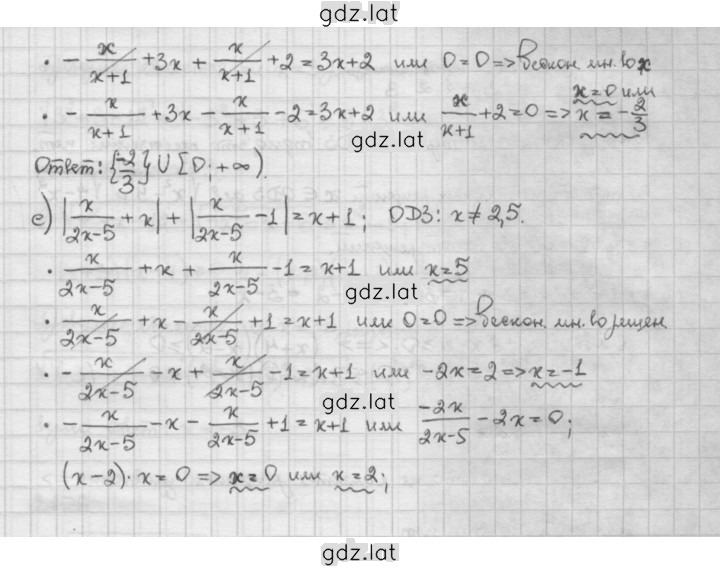 gdz.lat
· - x/(x+1) + 3x + x/(x+1) + 2 = 3x+2 или 0=0 => бескон. мн. во x
· - x/(x+1) + 3x - x/(x+1) - 2 = 3x+2 или x/(x+1) + 2 = 0 => x=0 или x = -2/3
gdz.lat
Ответ: {-2/3} U [0; +∞).
е) |x/(2x-5) + x| + |x/(2x-5) - 1| = x+1; ОДЗ: x ≠ 2,5.
· x/(2x-5) + x + x/(2x-5) - 1 = x+1 или x=5
gdz.lat
· x/(2x-5) + x - x/(2x-5) + 1 = x+1 или 0=0 => бескон. мн. во решен
· - x/(2x-5) - x + x/(2x-5) - 1 = x+1 или -2x=2 => x=-1
gdz.lat
· - x/(2x-5) - x - x/(2x-5) + 1 = x+1 или -2x/(2x-5) - 2x = 0;
(x-2)·x=0 => x=0 или x=2;
gdz.lat